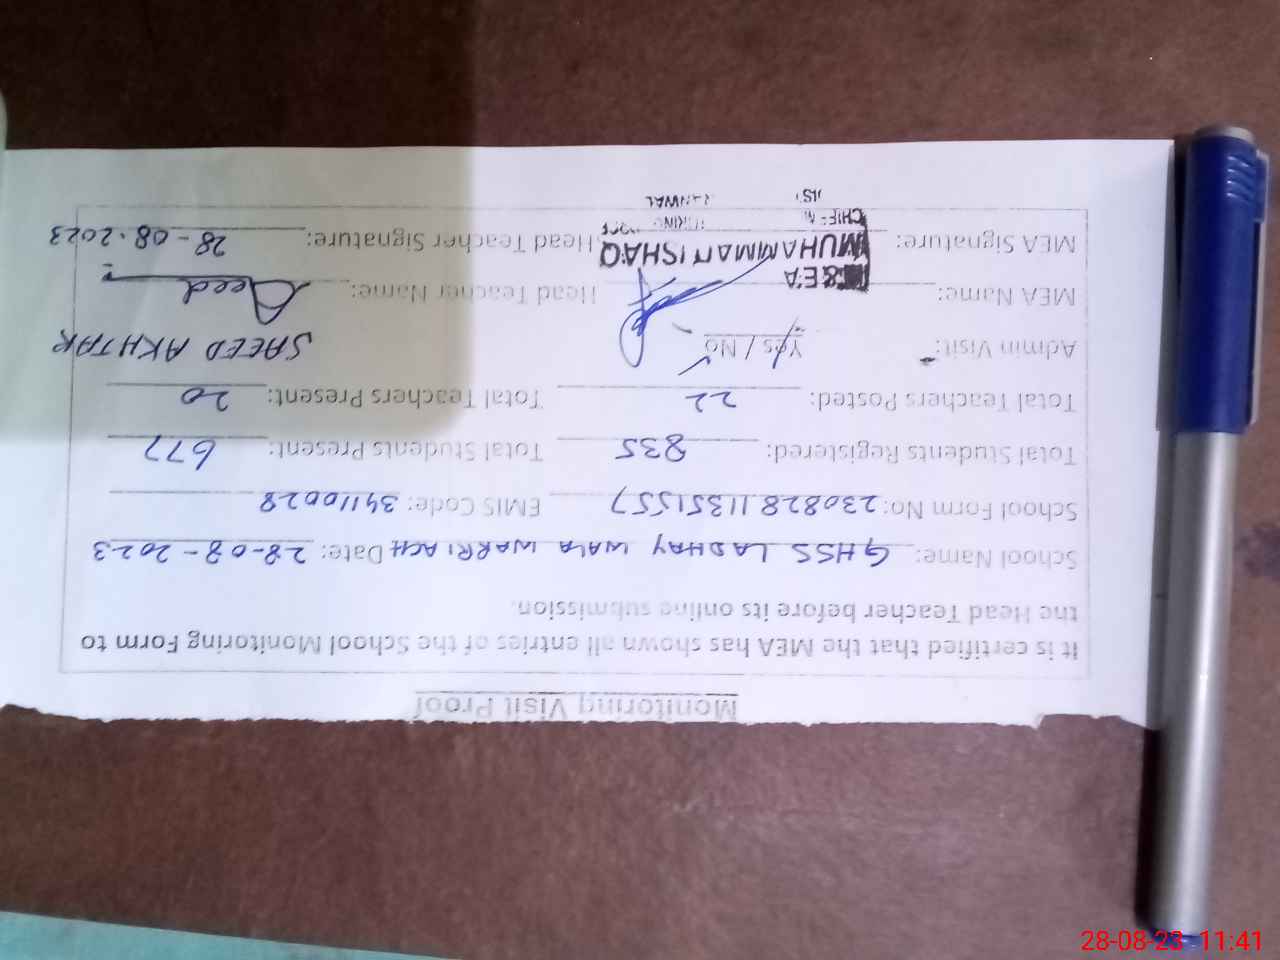 Monitoring Visit Proof
It is certified that the MEA has shown all entries of the School Monitoring Form to
the Head Teacher before its online submission.
School Name: GHSS LADHAY WALA WARRIACH Date: 28-08-2023
School Form No: 230828113515157 EMIS Code: 34110028
Total Students Registered: 835 Total Students Present: 677
Total Teachers Posted: 22 Total Teachers Present: 20
Admin Visit: Yes / No SAEED AKHTAR
MEA Name: Head Teacher Name: Saeed
MEA Signature: Head Teacher Signature: 28-08-2023
M&EA
MUHAMMAD ISHAQ
28-08-23 11:41